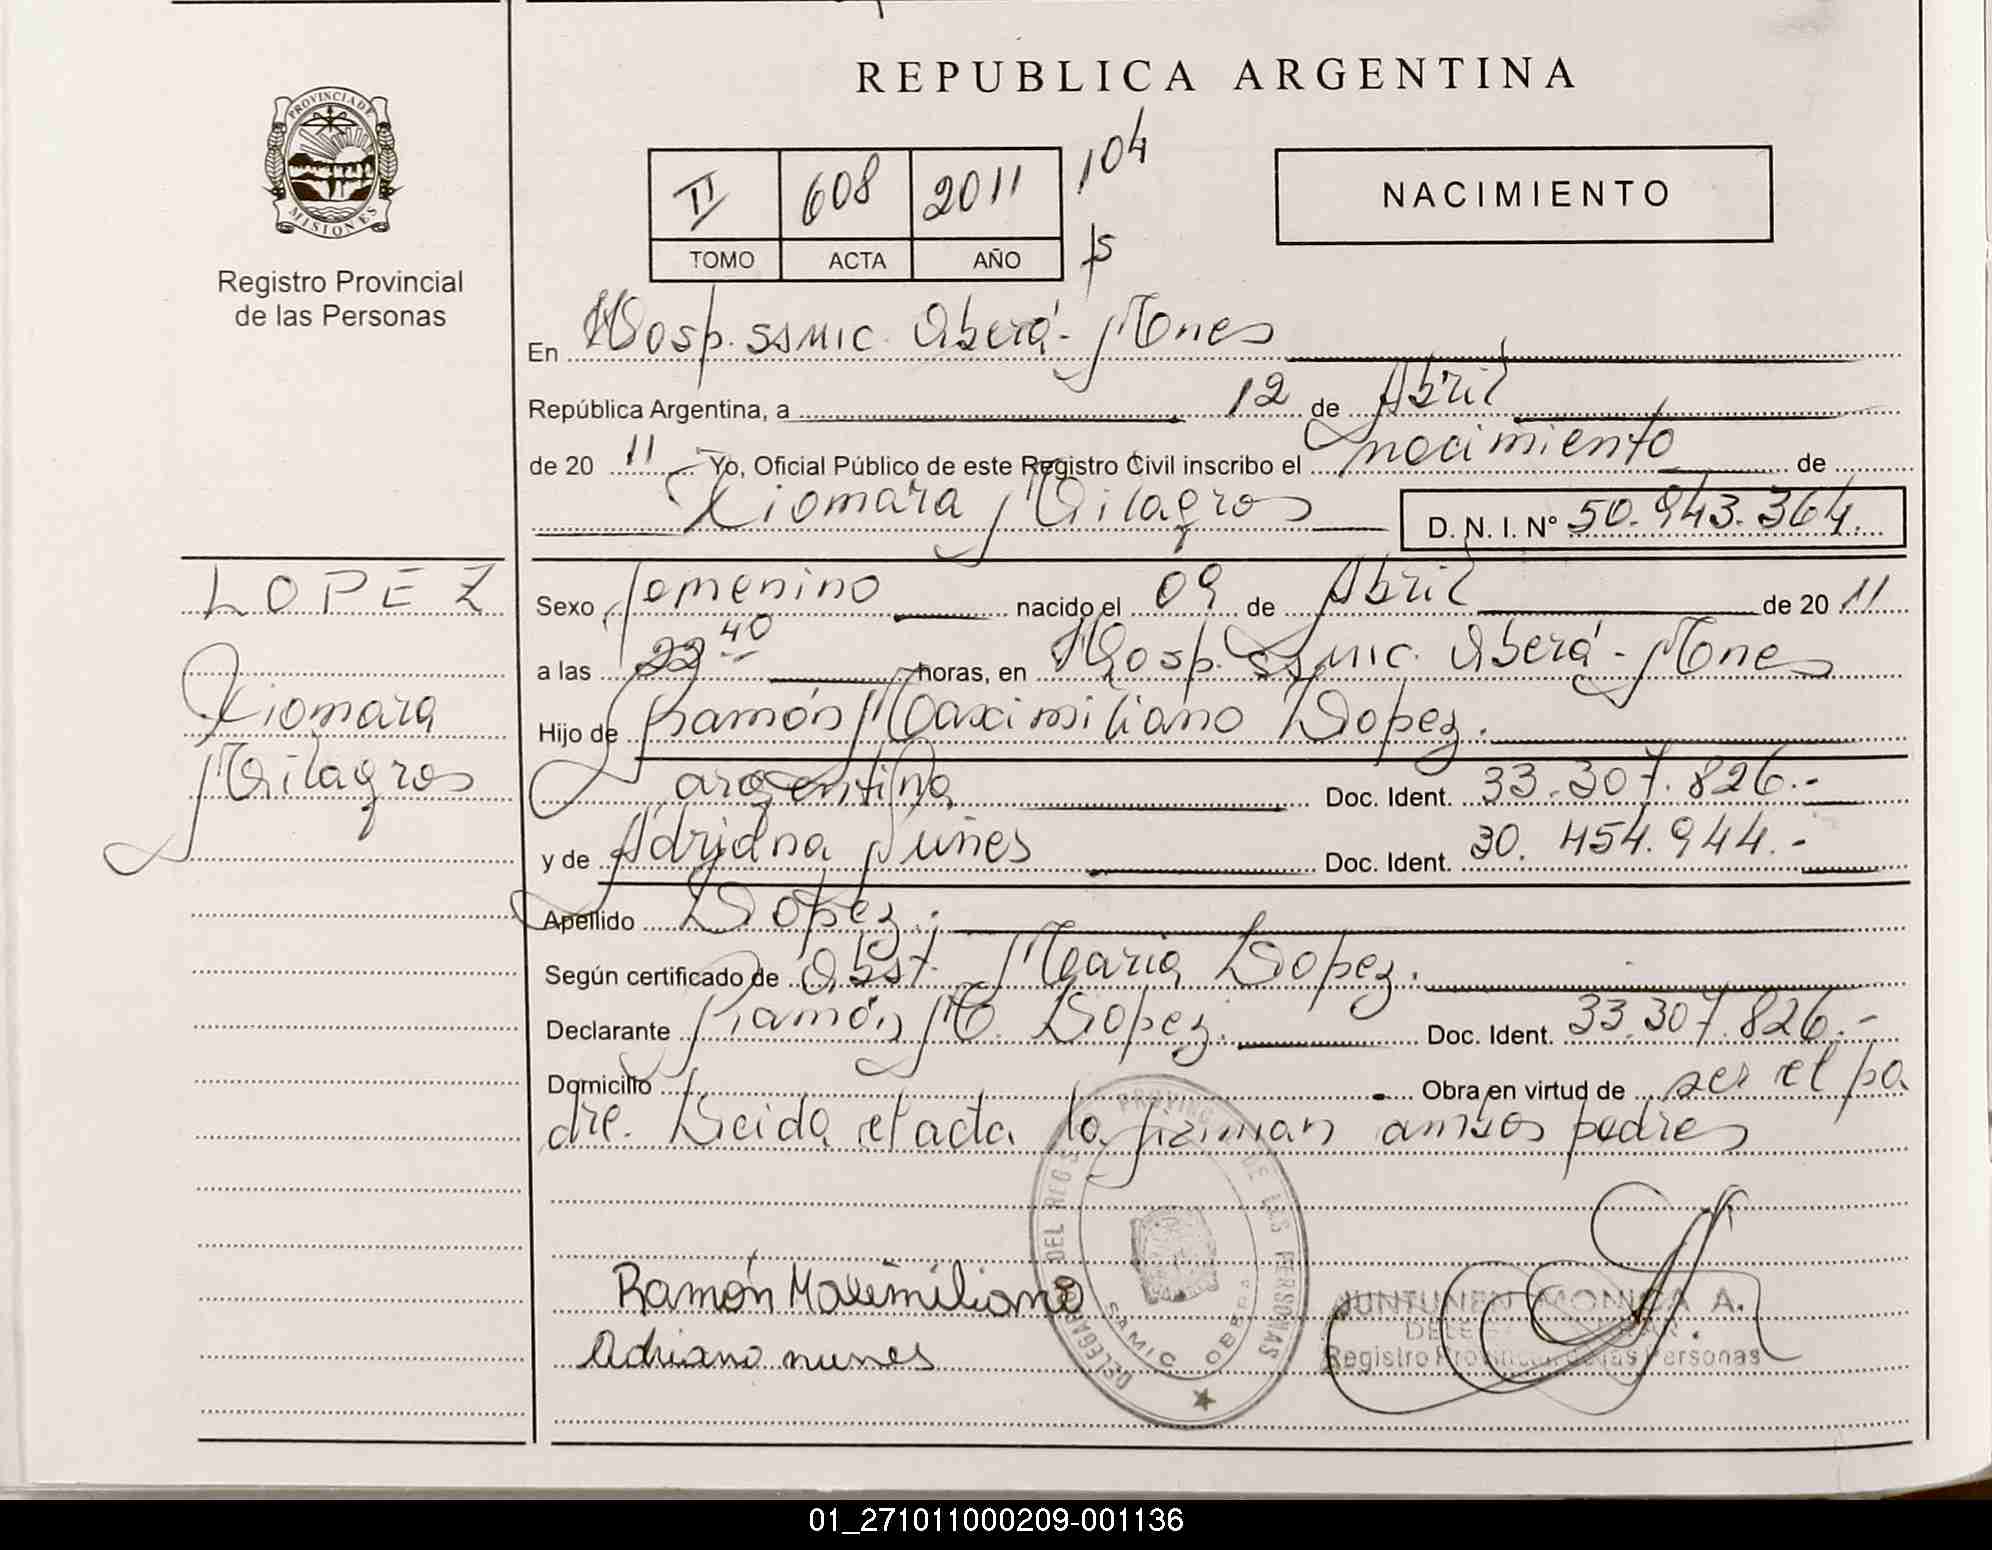 REPUBLICA ARGENTINA
PROVINCIA DE MISIONES
Registro Provincial
de las Personas
II 608 2011 104
TOMO ACTA AÑO
NACIMIENTO
En Hosp. SSMIC. Oberá - Mnes
República Argentina, a 12 de Abril
de 20 11 Yo, Oficial Público de este Registro Civil inscribo el nacimiento de
Xiomara Milagros D. N. I. N° 50.943.364.
LOPEZ
Xiomara
Milagros
Sexo femenino nacido el 09 de Abril de 20 11
a las 22 40 horas, en Hosp. SSMIC. Oberá - Mnes
Hijo de Ramón Maximiliano Lopez.
argentina Doc. Ident. 33.307.826.-
y de Adriana Nunes Doc. Ident. 30.454.944.-
Apellido Lopez.
Según certificado de Obst. Maria Lopez.
Declarante Ramón M. Lopez. Doc. Ident. 33.307.826.-
Domicilio Obra en virtud de ser el pa
dre. Leida el acta la firman ambos padres
Ramón Maximiliano
Adriano nunes
DELEGAC DEL REGIS PROVINC DE LAS PERSONAS
SAMIC OBERA
JUNTUNEN MONICA A.
Registro Provincial de las Personas
01_271011000209-001136